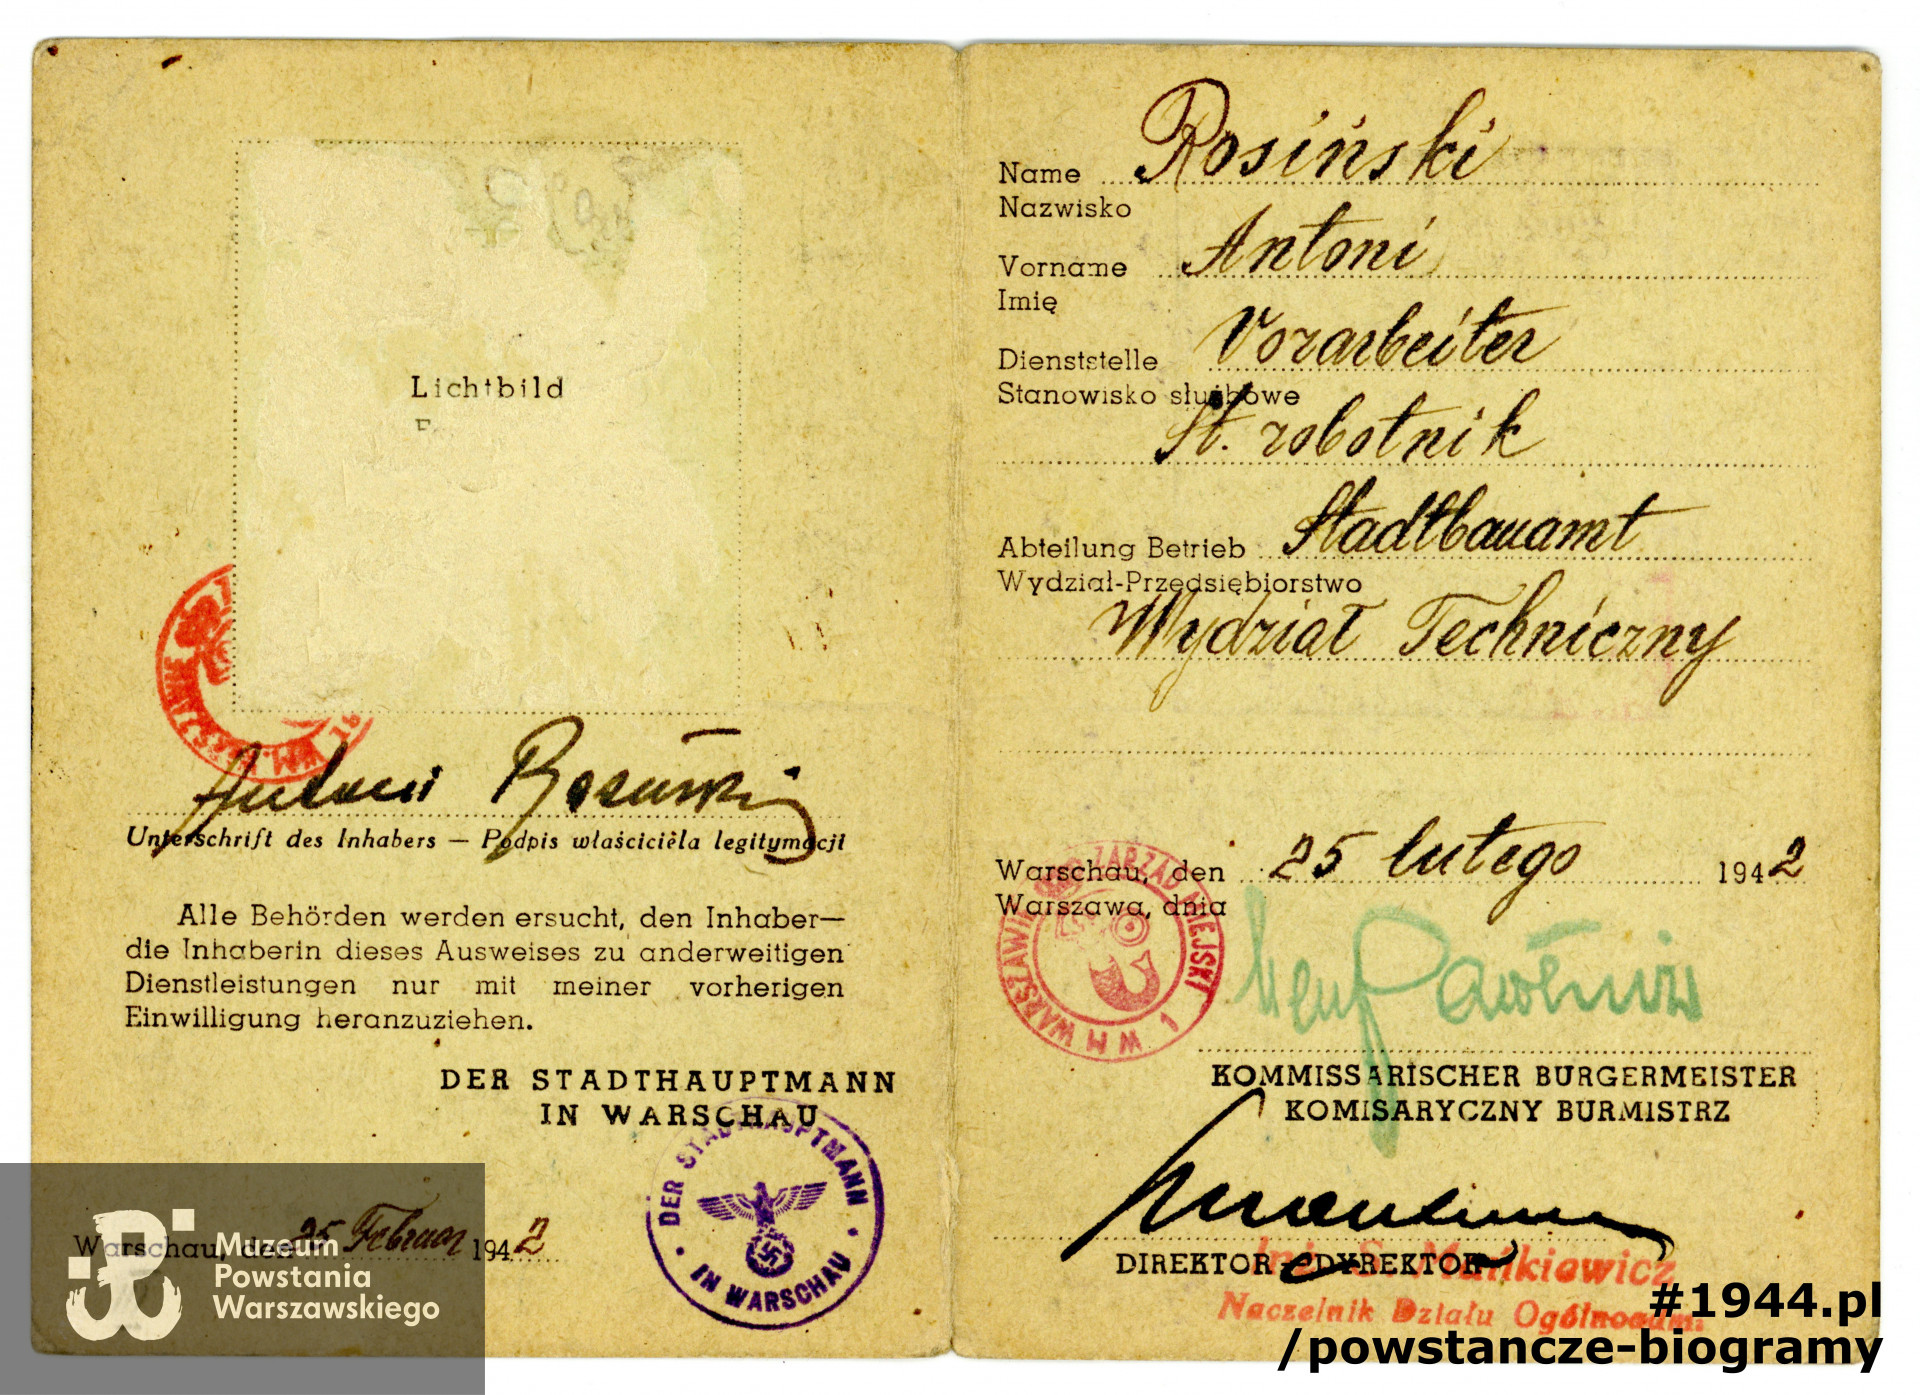 Lichtbild
Antoni Rosiński
Unterschrift des Inhabers — Podpis właściciela legitymacji
Alle Behörden werden ersucht, den Inhaber—
die Inhaberin dieses Ausweises zu anderweitigen
Dienstleistungen nur mit meiner vorherigen
Einwilligung heranzuziehen.
DER STADTHAUPTMANN
IN WARSCHAU
DER STADTHAUPTMANN
IN WARSCHAU
Warschau, den 25 Februar 1942
Muzeum
Powstania
Warszawskiego
Name Rosiński
Nazwisko
Vorname Antoni
Imię
Dienststelle Vorarbeiter
Stanowisko służbowe
St. robotnik
Abteilung Betrieb Stadtbauamt
Wydział-Przedsiębiorstwo
Wydział Techniczny
Warschau, den 25 lutego 1942
Warszawa, dnia
ZARZĄD MIEJSKI
W M WARSZAWIE
1
KOMMISSARISCHER BURGERMEISTER
KOMISARYCZNY BURMISTRZ
DIREKTOR - DYREKTOR
Inż. S. Mańkiewicz
Naczelnik Działu
#1944.pl
/powstancze-biogramy